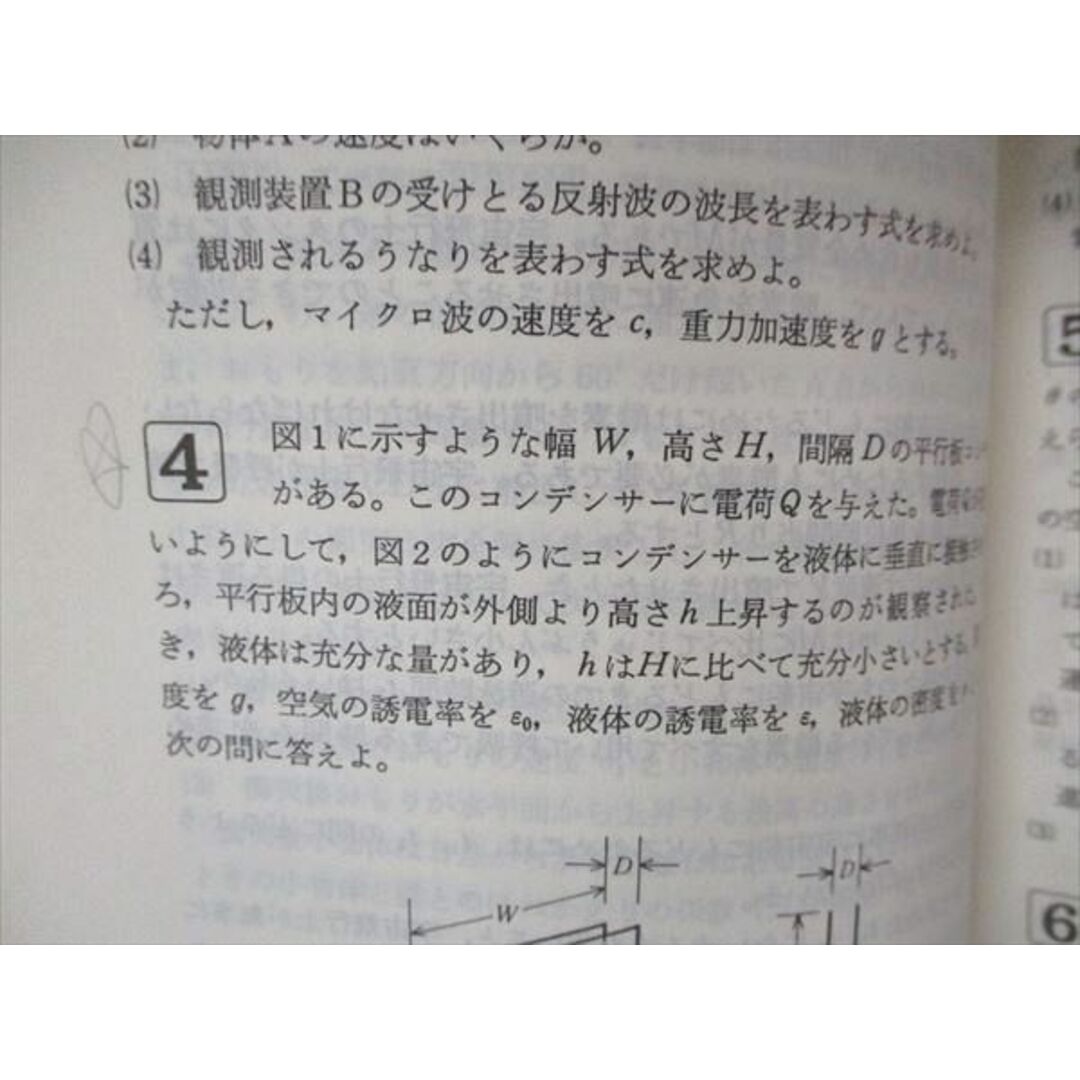 (2) 物体Aの速度はいくらか。
(3) 観測装置Bの受けとる反射波の波長を表わす式を求めよ。
(4) 観測されるうなりを表わす式を求めよ。
ただし，マイクロ波の速度を c，重力加速度を g とする。
4 図1に示すような幅 W，高さ H，間隔 D の平行板コン
がある。このコンデンサーに電荷Qを与えた。電荷
いようにして，図2のようにコンデンサーを液体に垂直に
ろ，平行板内の液面が外側より高さ h 上昇するのが観察された
き，液体は充分な量があり， h は H に比べて充分小さいとする。
度を g，空気の誘電率を ε₀，液体の誘電率を ε，液体の密度を
次の問に答えよ。
D
W
D
(4)
5
え
の空
(1)
は
で
る
6